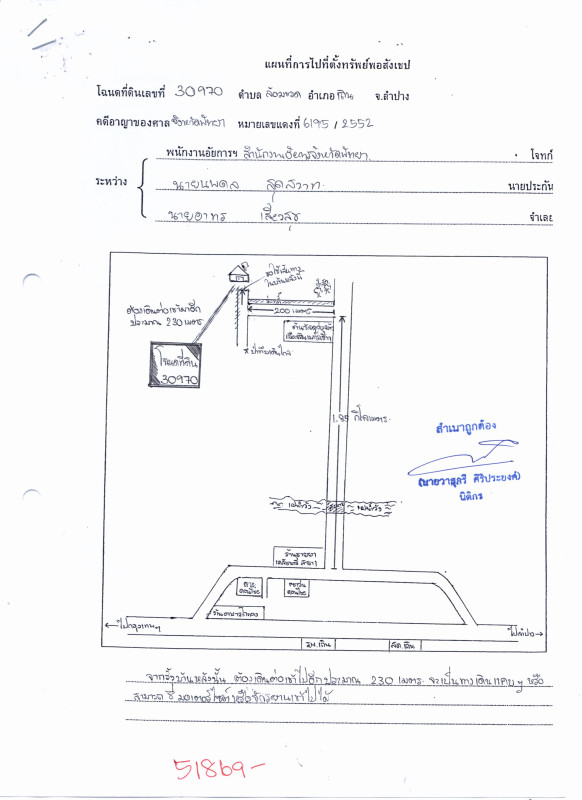 แผนที่การไปที่ตั้งทรัพย์พอสังเขป
โฉนดที่ดินเลขที่ 30970 ตำบล ล้อมแรด อำเภอ เถิน จ.ลำปาง
คดีอาญาของศาล จังหวัดพัทยา หมายเลขแดงที่ 6195 / 2552
พนักงานอัยการฯ สำนักงานอัยการจังหวัดพัทยา โจทก์
ระหว่าง นายนพดล สุดสวาท นายประกัน
นายอาทร จำเลย
ต้องเดินต่อเข้ามาอีก
ประมาณ 230 เมตร
โฉนดที่ดิน
30970
200 เมตร
1.95 กิโลเมตร
แม่น้ำวัง
แม่น้ำวัง
สำเนาถูกต้อง
(นายวาสุลรี ศิริประยงค์)
นิติกร
ร้านขายยา
ไปกรุงเทพฯ
ไปลำปาง
รพ.เถิน
สภ.เถิน
จากรั้วบ้านหลังนั้น ต้องเดินต่อเข้าไปอีกประมาณ 230 เมตร จะเป็นทางเดินแคบๆ หรือ
สามารถขี่มอเตอร์ไซค์หรือจักรยานเข้าไปได้
51869-